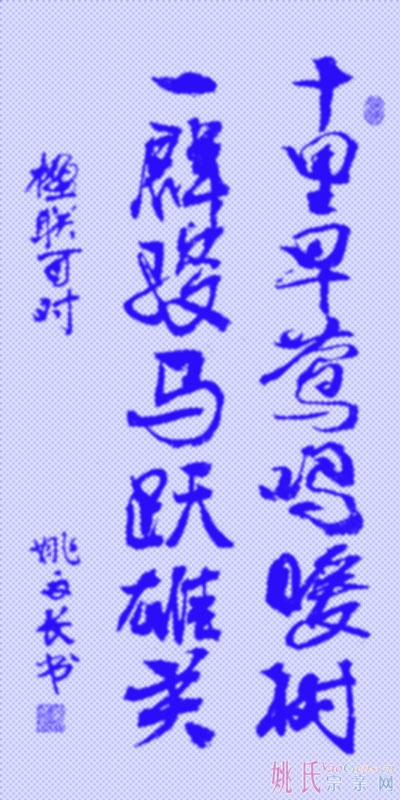 十里早莺鸣暖树
一群骏马跃雄关
楹联
姚 长书
姚氏宗亲网